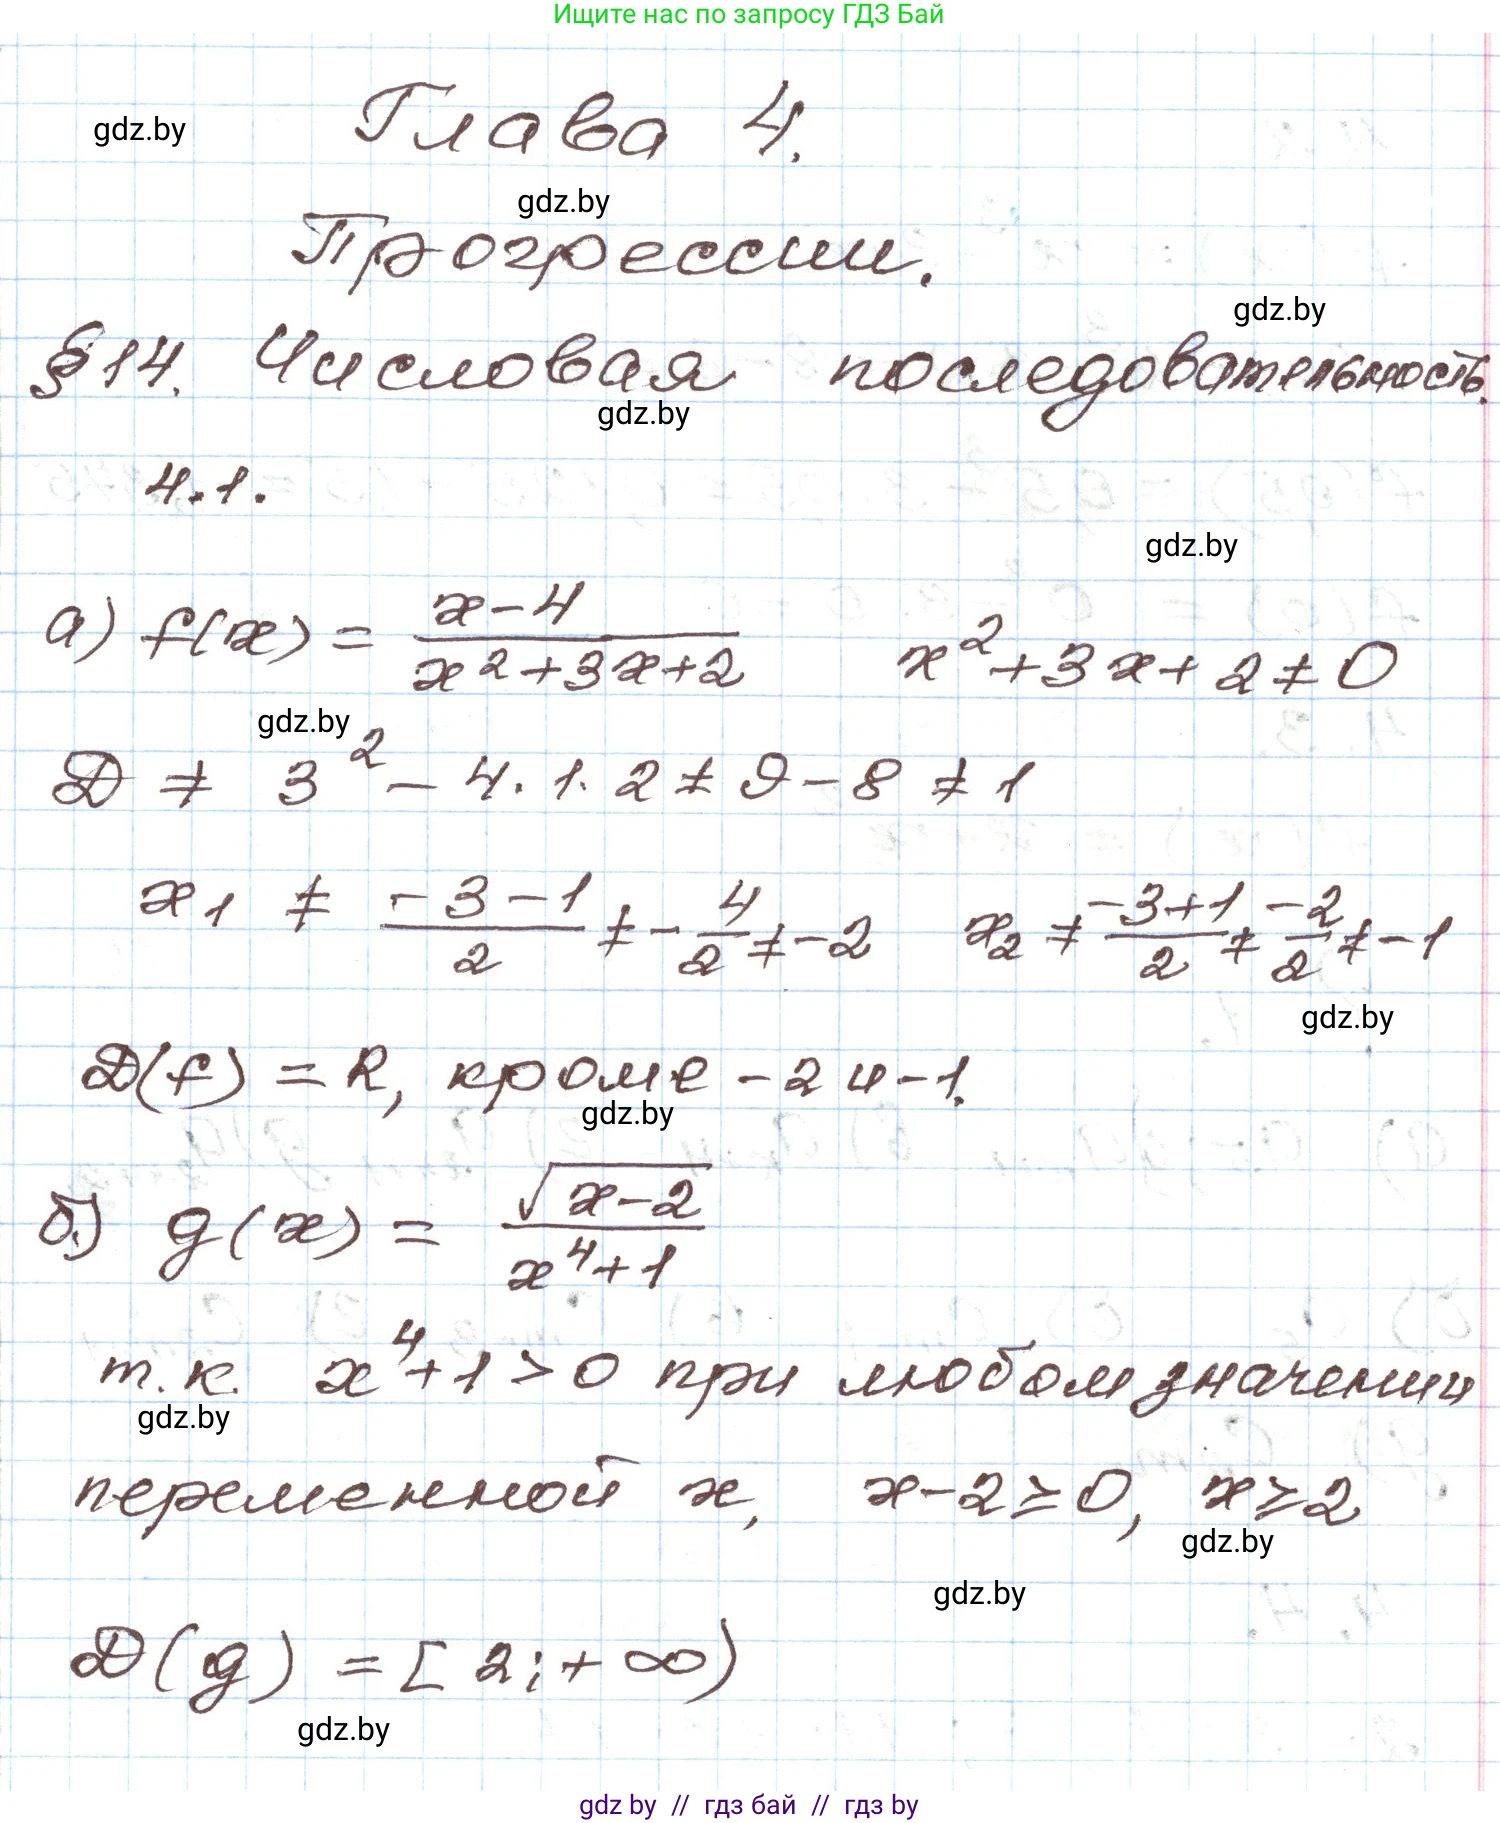 Ищите нас по запросу ГДЗ Бай
Глава 4.
gdz.by
gdz.by
Прогрессии.
gdz.by
§14. Числовая последовательность.
gdz.by
4.1.
gdz.by
а) f(x) = (x-4)/(x²+3x+2)   x²+3x+2≠0
gdz.by
D ≠ 3²-4·1·2≠9-8≠1
x₁ ≠ (-3-1)/2 ≠ -4/2 ≠ -2   x₂ ≠ (-3+1)/2 ≠ -2/2 ≠ -1
gdz.by
D(f) = R, кроме -2 и -1.
gdz.by
б) g(x) = √(x-2)/(x⁴+1)
т.к. x⁴+1>0 при любом значении
gdz.by
переменной x, x-2≥0, x≥2
gdz.by
gdz.by
D(g) = [2;+∞)
gdz.by
gdz by // гдз бай // гдз by